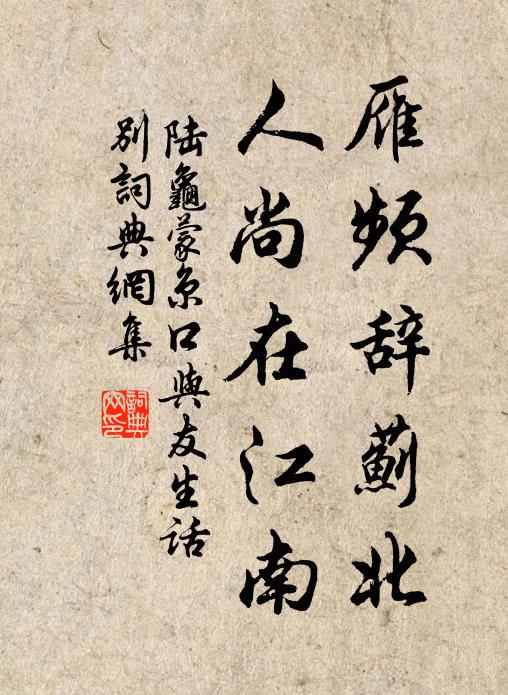 雁频辞蓟北
人尚在江南
陆龜蒙京口與友生話
别詞典網集
詞典网印